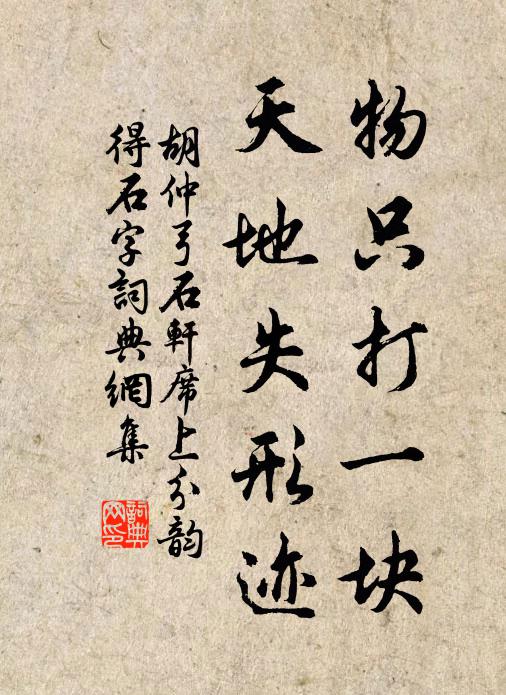 物只打一块
天地失形迹
胡仲弓石軒席上分韵
得石字詞典網集
詞典網印